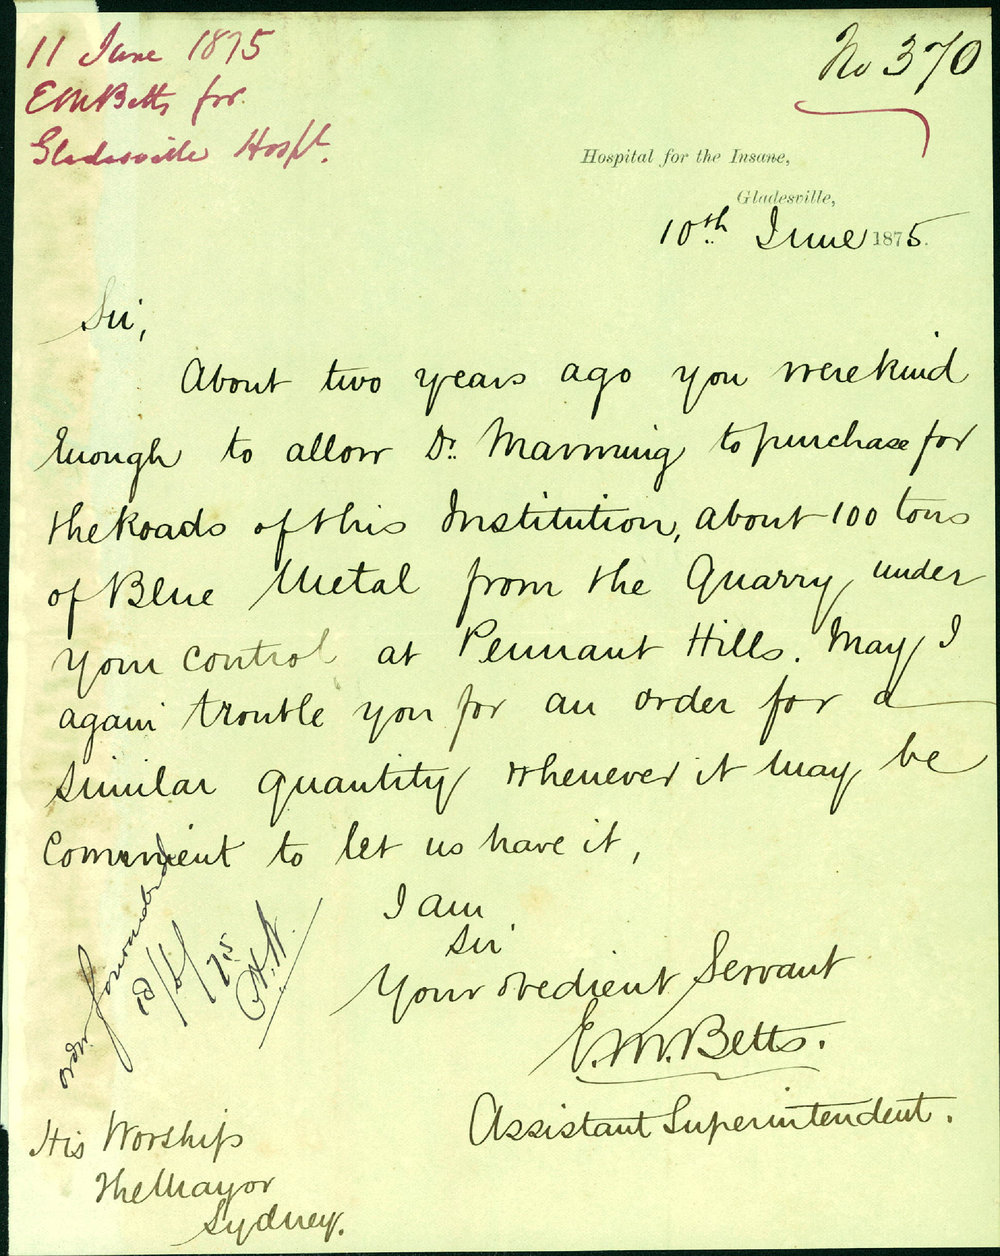 11 June 1875
EMBetts for
Gladesville Hospt.
No 370
Hospital for the Insane,
Gladesville,
10th June 1875.
Sir,
About two years ago you were kind
Enough to allow Dr. Manning to purchase for
the Roads of this Institution, about 100 tons
of Blue Metal from the Quarry under
your control at Pennant Hills. May I
again trouble you for an order for a
similar quantity whenever it may be
Convenient to let us have it,
I am
Sir
Your obedient Servant
E. M. Betts.
Assistant Superintendent.
order forwarded
His Worship
The Mayor
Sydney.